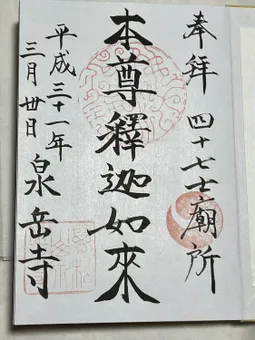 奉拝 四十七士廟所
本尊釋迦如來
平成三十一年
三月廿日
泉岳寺